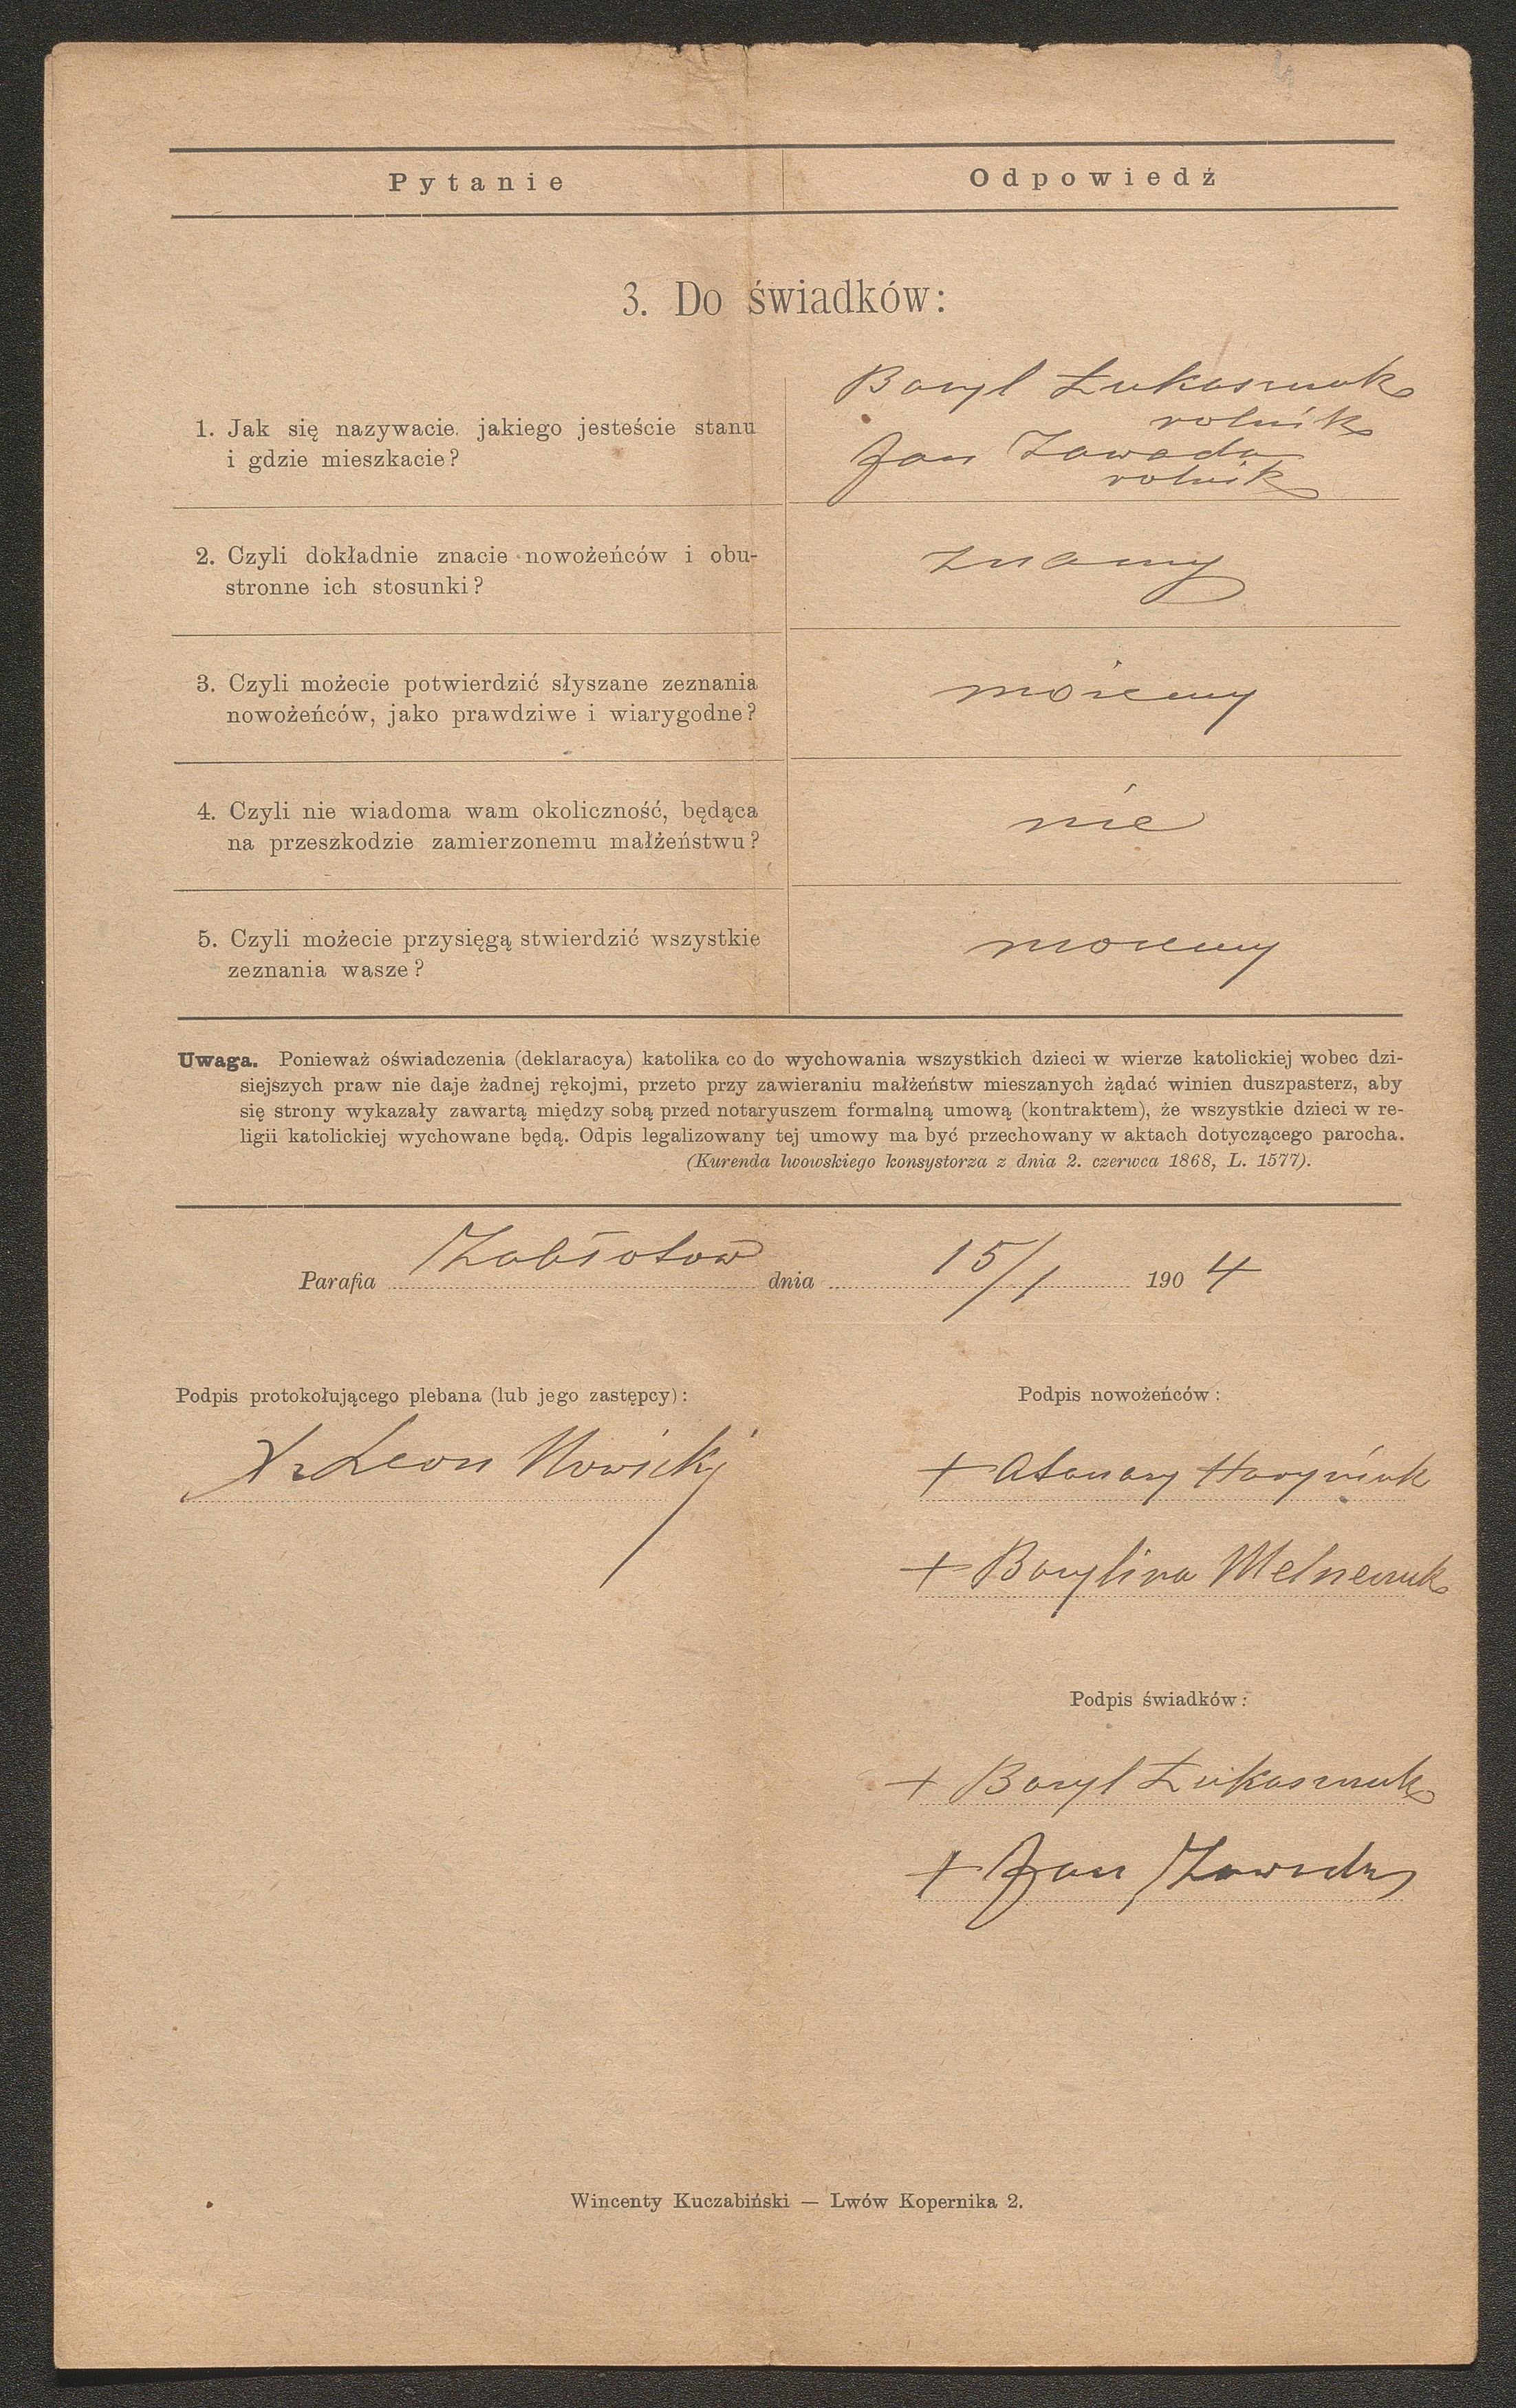 Pytanie
Odpowiedź
3. Do świadków:
1. Jak się nazywacie. jakiego jesteście stanu
i gdzie mieszkacie?
Bazyl Łukaszczuk
rolnik
Jan Zawada
rolnik
2. Czyli dokładnie znacie nowożeńców i obu-
stronne ich stosunki?
znamy
3. Czyli możecie potwierdzić słyszane zeznania
nowożeńców, jako prawdziwe i wiarygodne?
możemy
4. Czyli nie wiadoma wam okoliczność, będąca
na przeszkodzie zamierzonemu małżeństwu?
nie
5. Czyli możecie przysięgą stwierdzić wszystkie
zeznania wasze?
możemy
Uwaga. Ponieważ oświadczenia (deklaracya) katolika co do wychowania wszystkich dzieci w wierze katolickiej wobec dzi-
siejszych praw nie daje żadnej rękojmi, przeto przy zawieraniu małżeństw mieszanych żądać winien duszpasterz, aby
się strony wykazały zawartą między sobą przed notaryuszem formalną umową (kontraktem), że wszystkie dzieci w re-
ligii katolickiej wychowane będą. Odpis legalizowany tej umowy ma być przechowany w aktach dotyczącego parocha.
(Kurenda lwowskiego konsystorza z dnia 2. czerwca 1868, L. 1577).
Parafia Zabłotów dnia 15/1 1904
Podpis protokołującego plebana (lub jego zastępcy):
Podpis nowożeńców:
X Leon Nowicki
+ Atanazy
+ Bazylina
Podpis świadków:
+ Bazyl Łukaszczuk
+ Jan Zawada
Wincenty Kuczabiński — Lwów Kopernika 2.